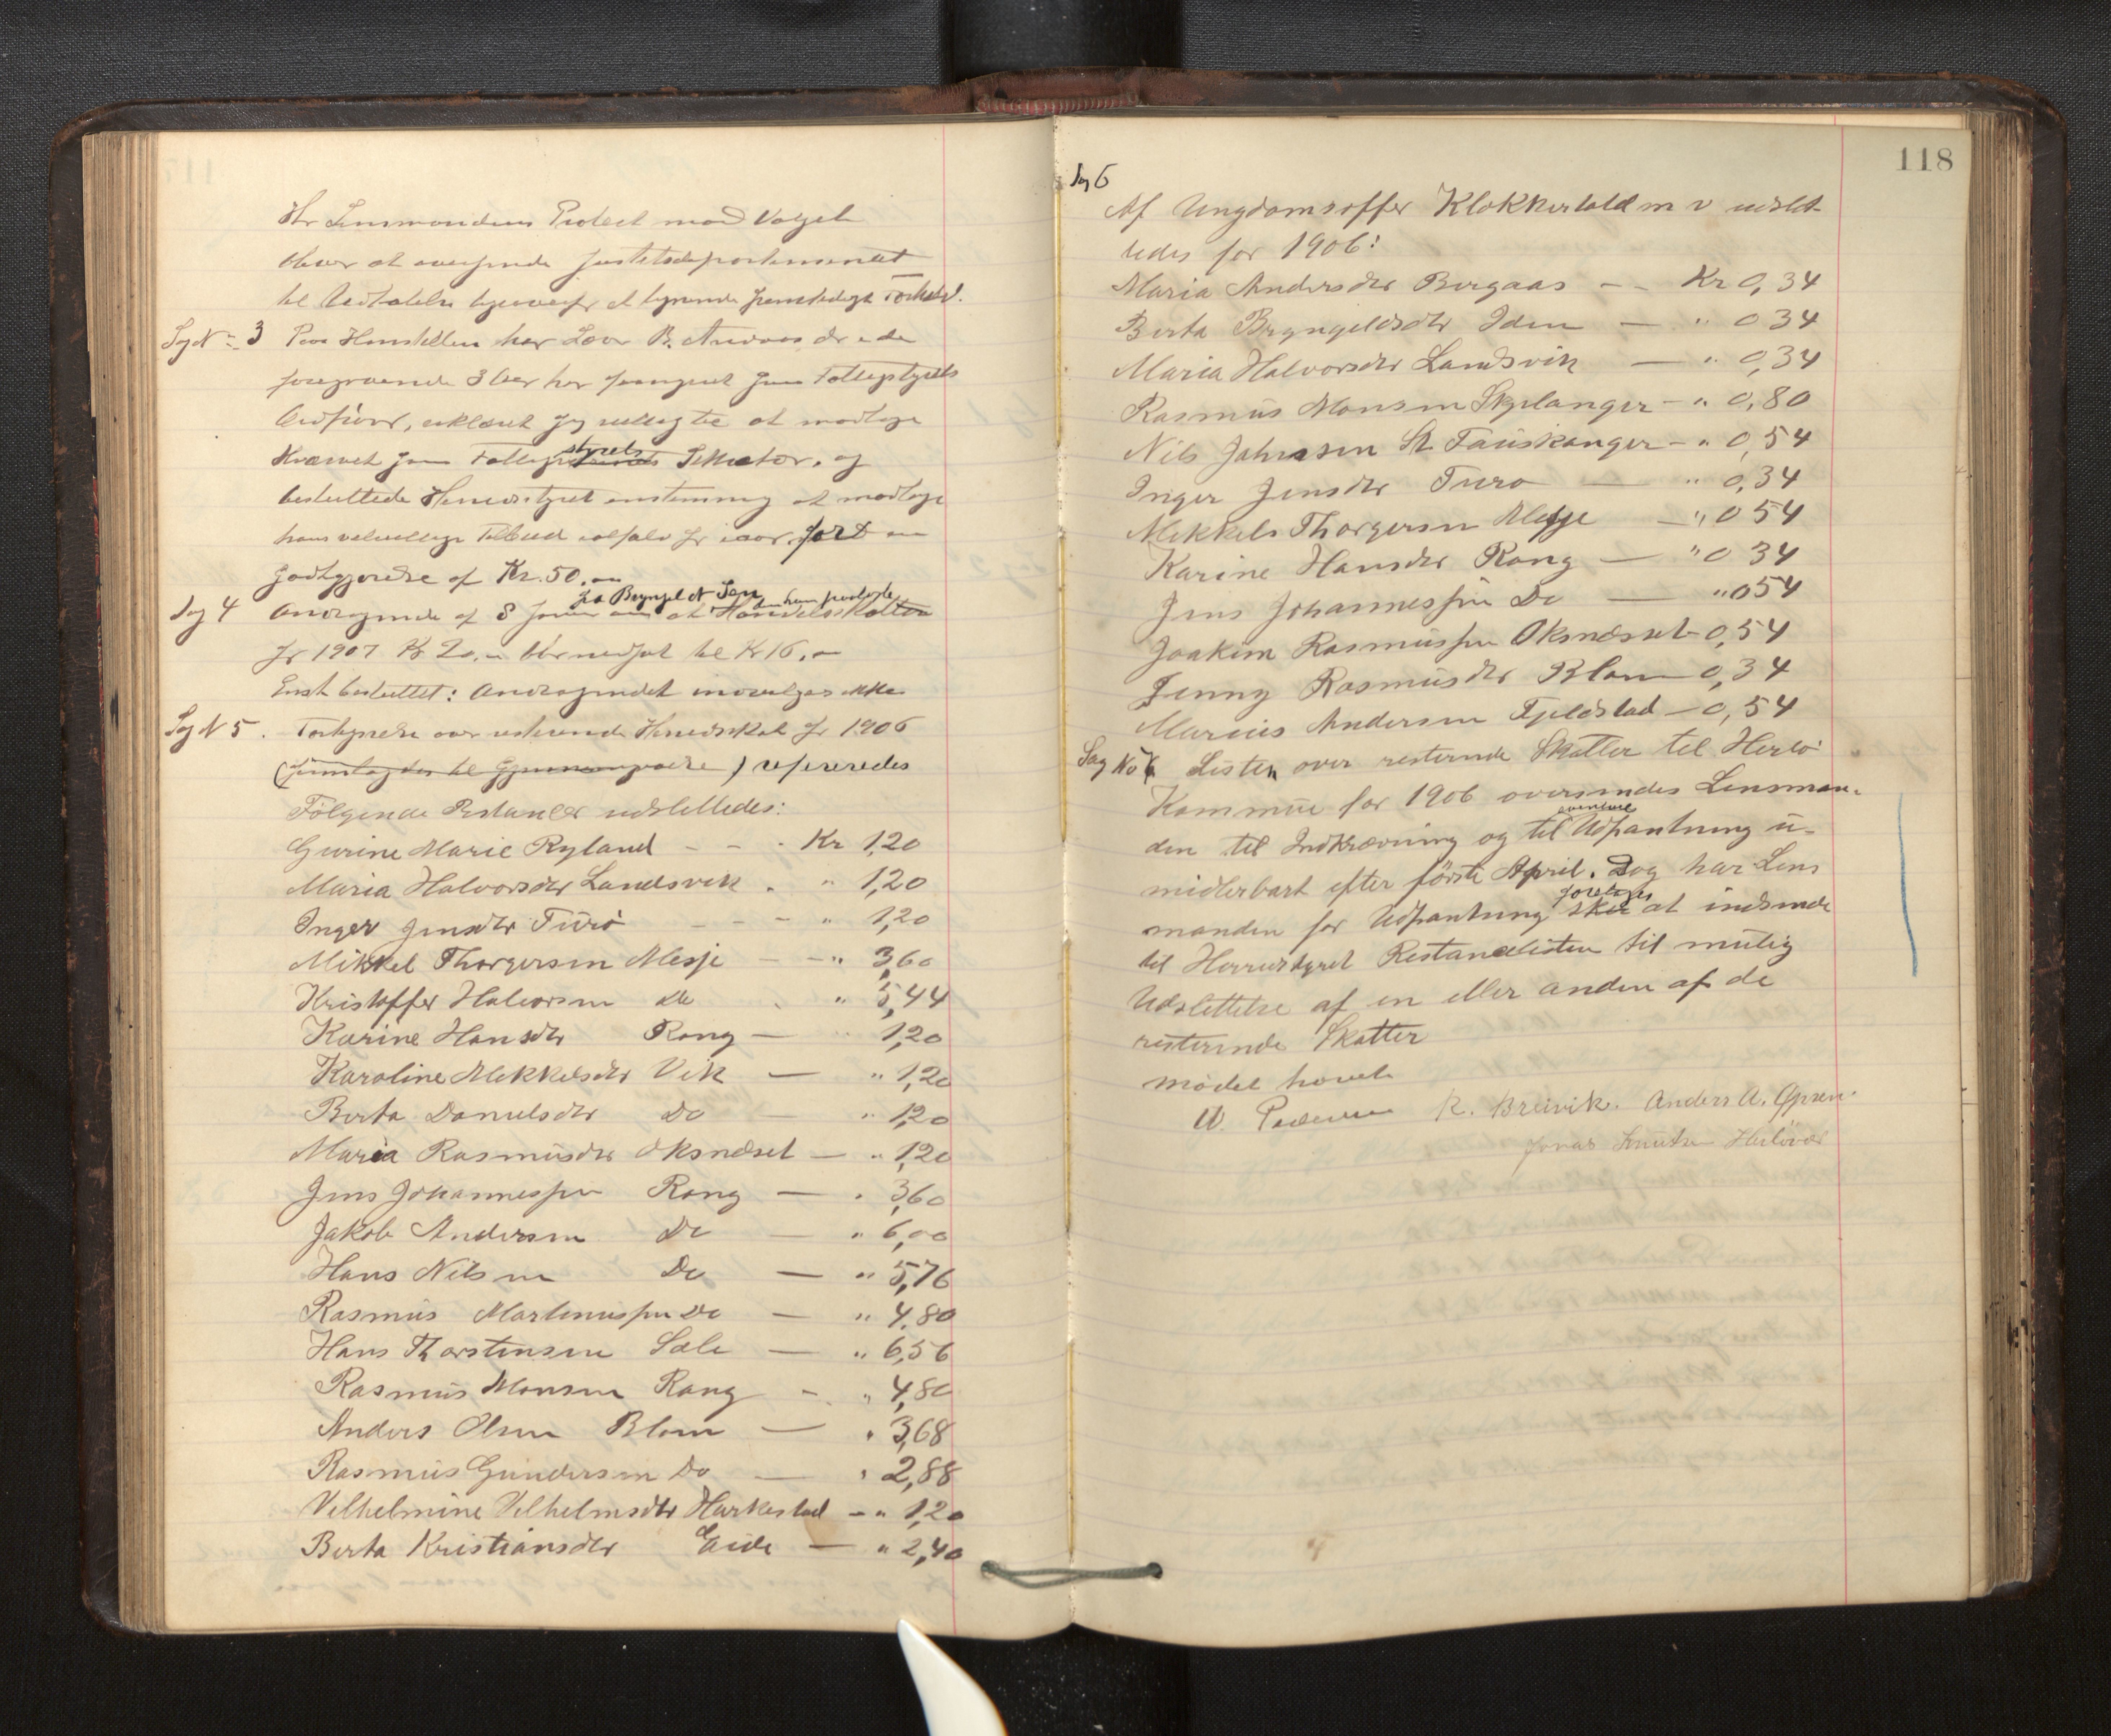 Hr Lensmandens Protest mod Valget
bliver at oversende Justitsdepartementet
til Udtalelse
Sag N: 3 Paa Henstillen har Lærer B.
foregaaende 3 Aar har fungeret som Fattigstyrets
at modtage
Hvervet som Fattigstyrets styrets og
besluttede Herredstyret enstemmig at modtage
hans velvillige Tilbud for iaar mod en
Godtgjørelse af Kr. 50,00
fra Bryngel N
Sag 4 Andragende af S at Handelsskatten
for 1907 Kr 20,00 blir nedsat til Kr 16,00
Enst besluttet: Andragendet indvilges ikke
Sag N 5. Fortegnelse over restrende Herredskat for 1906
) refereredes
Følgende Restancer udslettedes:
Gurine Marie Ryland - - - Kr 1,20
Maria Halvorsdtr Landsvik - " 1,20
Inger Jensdtr Turø - - " 1,20
Mikkel Thorgersen Mesje - - " 3,60
Kristoffer Halvorsen do - " 5,44
Karine Hansdtr Rong — " 1,20
Karoline Mikkelsdtr Vik — " 1,20
Berta Danielsdtr Do — " 1,20
Maria Rasmusdtr Oksnæset — " 1,20
Jens Johannessen Rong — " 3,60
Jakob Andersen Do — " 6,00
Hans Nilsen Do — " 5,76
Rasmus Martinussen Do — " 4,80
Hans Thorstensen Sæle — " 6,56
Rasmus Monsen Rong - " 4,80
Anders Olsen Blom — " 3,68
Rasmus Gundersen Do — " 2,88
Vilhelmine Vilhelmsdtr Harkestad - " 1,20
Berta Kristiansdtr Eide — " 2,40
118
Sag 6
Af Ungdomsoffer Klokkertold m v udslet-
tedes for 1906:
Maria Andersdtr Bergaas - - Kr 0,34
Berta Bryngeldsdtr Iden — " 0 34
Maria Halvorsdtr Landsvik — " 0,34
Rasmus Monsen Skjelanger - " 0,80
Nils Johnssen St Tauskanger - " 0,54
Inger Jensdtr Turø — " 0,34
Mikkels Thorgersen Mesje — " 0 54
Karine Hansdtr Rong — " 0 34
Jens Johannessen Do — " 0 54
Joakim Rasmussen Oksnæset - 0,54
Jenny Rasmusdtr Blom - 0,34
Marius Andersen Fjeldstad - 0,54
Sag No Listen over resterende Skatter til Herlø
Kommue for 1906 oversendes Lensman-
eventuel
den til Indkrævning og til Udpantning u-
midlerbart efter første April. Dog har Lens
foretages
manden før Udpantning sker at indsende
til Herredstyret Restancelisten til mulig
Udslettelse af en eller anden af de
resterende Skatter
Mødet hævet
W. Pedersen R. Breivik. Anders A. Opsen.
Jonas Knutsen Herløvær